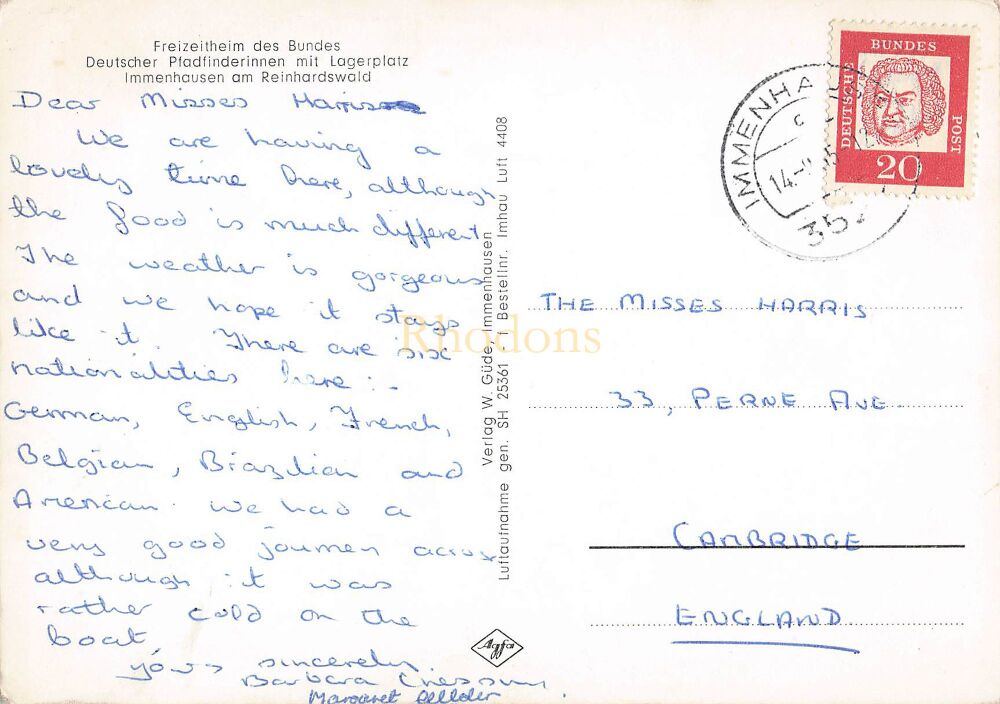 Freizeitheim des Bundes
Deutscher Pfadfinderinnen mit Lagerplatz
Immenhausen am Reinhardswald
Dear Misses Harris
We are having a
lovely time here, although
the food is much different
The weather is gorgeous
and we hope it stays
like it. There are six
nationalities here :-
German, English, French,
Belgian, Brazilian and
American. We had a
very good journey across
although it was
rather cold on the
boat
yours sincerely.
Barbara
Margaret
Verlag W. Güde, Immenhausen
Luftaufnahme gen. SH 25361 - 1 Bestellnr. Imhau Luft 4408
Agfa
Rhodons
IMMENHAUSEN
c
14.
352
DEUTSCHE
BUNDES
POST
20
THE MISSES HARRIS
33, PERNE AVE.
CAMBRIDGE
ENGLAND